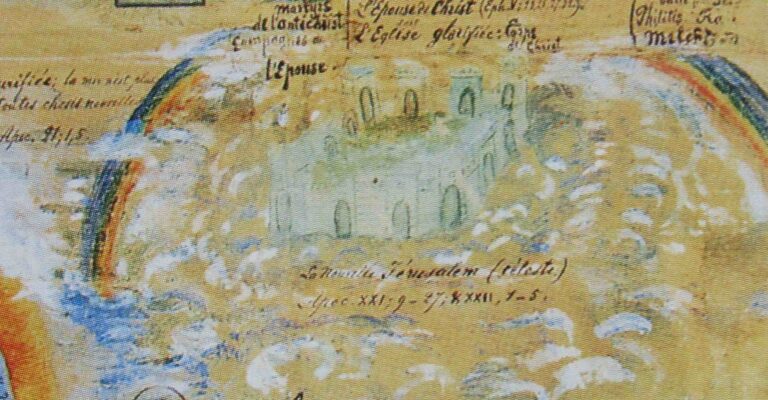 martyrs
de l'antéchrist
Compagnes de
l'Épouse.
l'Épouse de Christ (Eph.
L'Église glorifiée: Corps
de Christ
Melch
purifiée; la mer n'est plus
toutes choses nouvelles
Apoc. 21; 1, 5.
La Nouvelle Jérusalem (céleste)
Apoc. XXI; 9-27; XXII, 1-5.